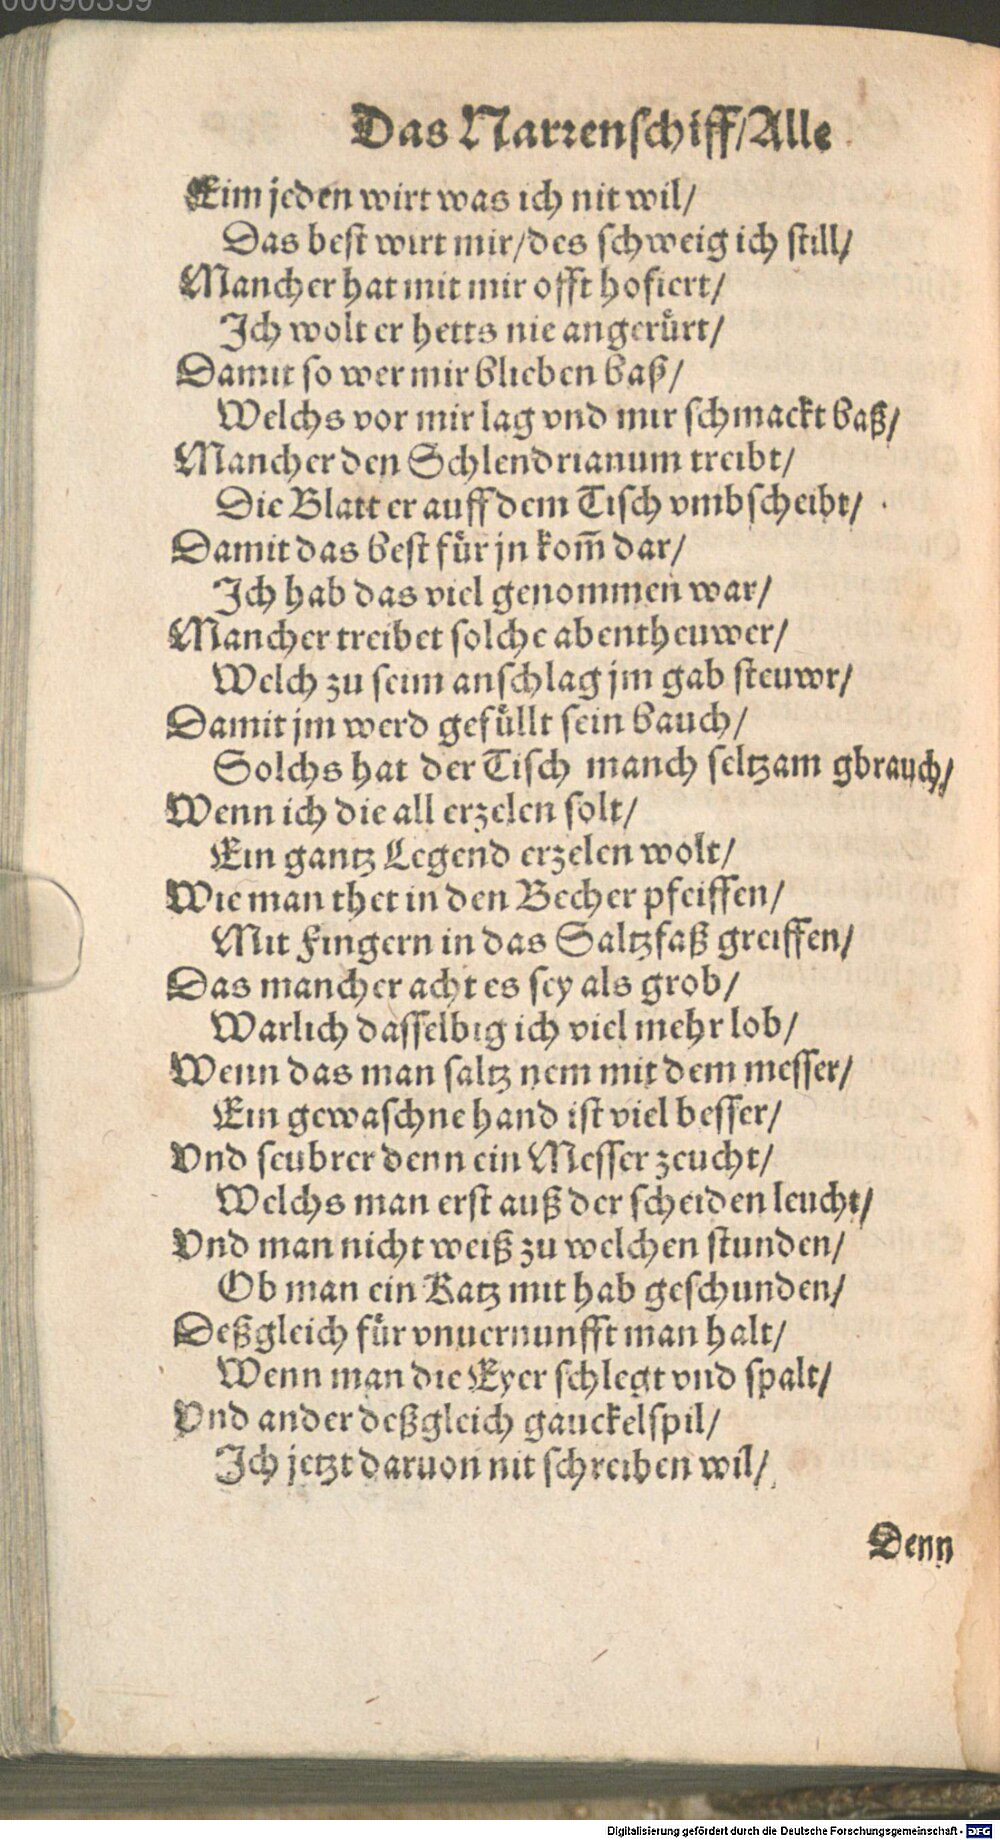 00090359
Das Narrenschiff/Alle
Eim jeden wirt was ich nit wil/
Das best wirt mir/des schweig ich still/
Mancher hat mit mir offt hofiert/
Ich wolt er hetts nie angeruͤrt/
Damit so wer mir blieben baß/
Welchs vor mir lag vnd mir schmackt baß/
Mancher den Schlendrianum treibt/
Die Blatt er auff dem Tisch vmbscheibt/
Damit das best fuͤr jn kom̃ dar/
Ich hab das viel genommen war/
Mancher treibet solche abentheuwer/
Welch zu seim anschlag jm gab steuwr/
Damit jm werd gefuͤllt sein bauch/
Solchs hat der Tisch manch seltzam gbrauch/
Wenn ich die all erzelen solt/
Ein gantz Legend erzelen wolt/
Wie man thet in den Becher pfeiffen/
Mit Fingern in das Saltzfaß greiffen/
Das mancher acht es sey als grob/
Warlich dasselbig ich viel mehr lob/
Wenn das man saltz nem mit dem messer/
Ein gewaschne hand ist viel besser/
Vnd seubrer denn ein Messer zeucht/
Welchs man erst auß der scheiden leucht/
Vnd man nicht weiß zu welchen stunden/
Ob man ein Katz mit hab geschunden/
Deßgleich fuͤr vnuernunfft man halt/
Wenn man die Eyer schlegt vnd spalt/
Vnd ander deßgleich gauckelspil/
Ich jetzt daruon nit schreiben wil/
Denn
Digitalisierung gefördert durch die Deutsche Forschungsgemeinschaft - DFG